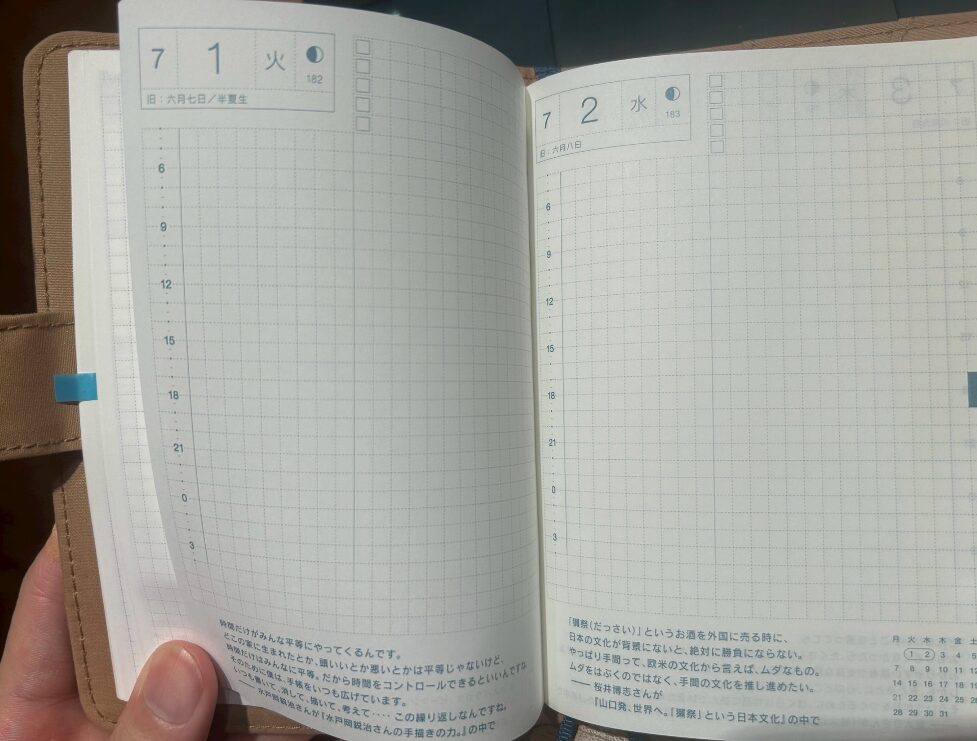 7 1 火
182
旧：六月七日／半夏生
6
9
12
15
18
21
0
3
時間だけがみんな平等にやってくるんです。
どこの家に生まれたとか、頭いいとか悪いとかは平等じゃないけど、
時間だけはみんなに平等。だから時間をコントロールできるといいんですね
そのために僕は、手帳をいつも広げています。
いつも書いて、消して、描いて、考えて‥‥この繰り返しなんですね。
──水戸岡鋭治さんが『水戸岡鋭治さんの手描きの力。』の中で
7 2 水
183
旧：六月八日
6
9
12
15
18
21
0
3
「獺祭（だっさい）」というお酒を外国に売る時に、
日本の文化が背景にないと、絶対に勝負にならない。
やっぱり手間って、欧米の文化から言えば、ムダなもの。
ムダをはぶくのではなく、手間の文化を推し進めたい。
──桜井博志さんが
『山口発、世界へ。「獺祭」という日本文化』の中で
月 火 水 木 金
1 2 3 4 5
7 8 9 10 11 12
14 15 16 17 18
21 22 23 24 25
28 29 30 31